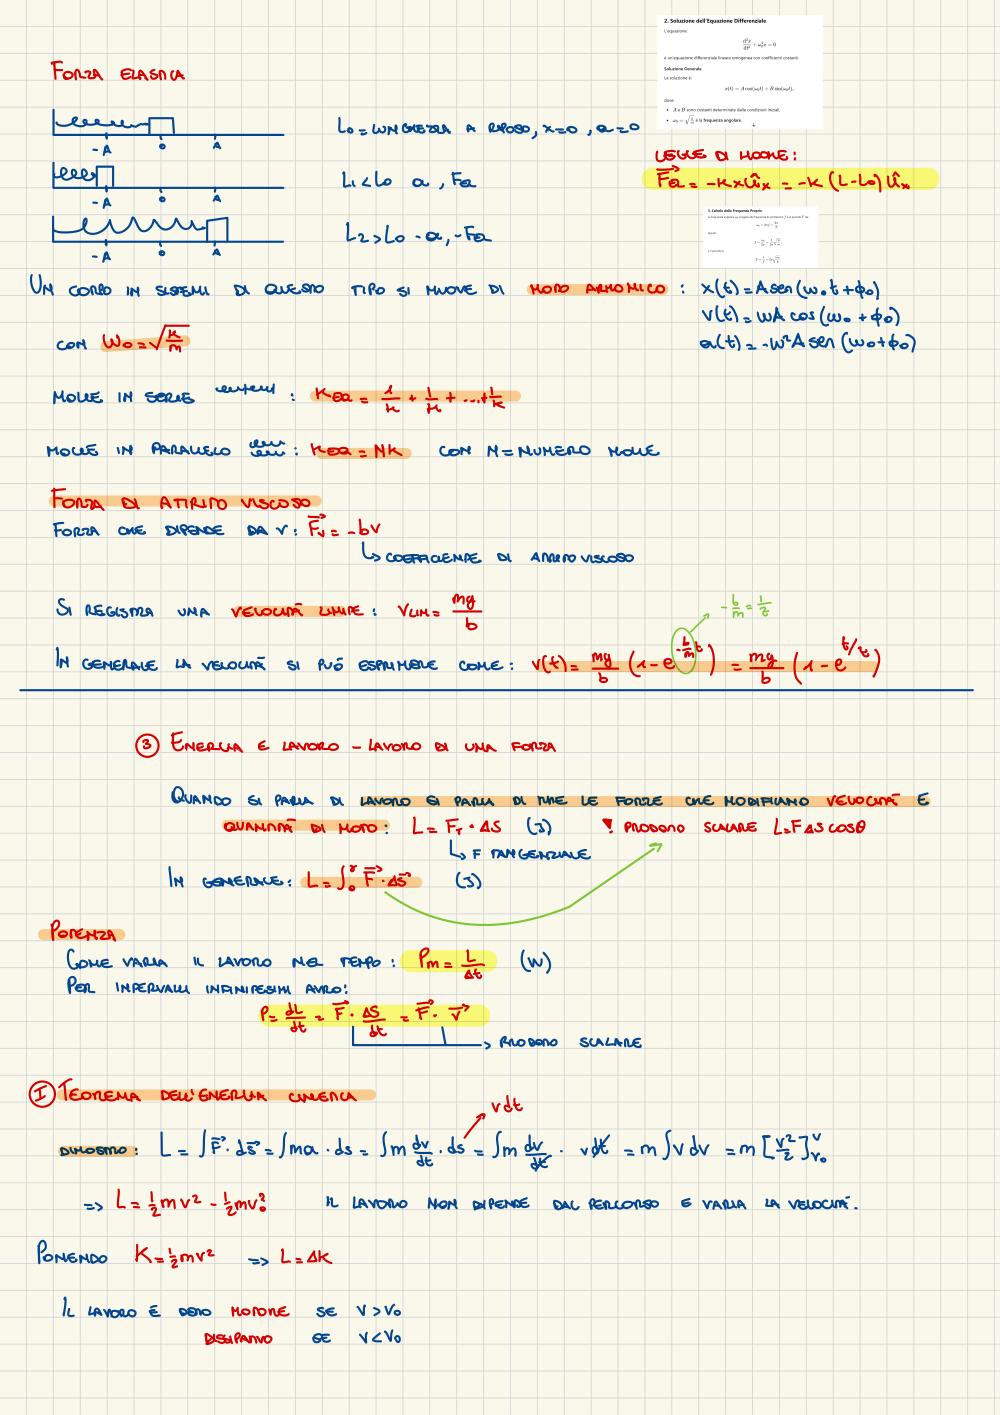 2. Soluzione dell'Equazione Differenziale
L'equazione:
d²x/dt² + ω₀²x = 0
è un'equazione differenziale lineare omogenea con coefficienti costanti.
Soluzione Generale
La soluzione è:
x(t) = A cos(ω₀t) + B sin(ω₀t),
dove:
• A e B sono costanti determinate dalle condizioni iniziali,
• ω₀ = √(k/m) è la frequenza angolare.
FORZA ELASTICA
-A O A
L₀ = LUNGHEZZA A RIPOSO, x=0, a=0
LEGGE DI HOOKE:
F⃗el = -Kxûx = -K (L-L₀) ûx
-A O A
L₁ < L₀ a, Fel
3. Calcolo della Frequenza Propria
-A O A
L₂ > L₀ -a, -Fel
UN CORPO IN SISTEMI DI QUESTO TIPO SI MUOVE DI MOTO ARMONICO : x(t) = A sen (ω₀t + ϕ₀)
v(t) = ωA cos (ω₀ + ϕ₀)
a(t) = -ω²A sen (ω₀ + ϕ₀)
CON ω₀ = √(K/m)
MOLLE IN SERIE : KEQ = 1/K + 1/K + ... + 1/K
MOLLE IN PARALLELO : KEQ = NK CON N = NUMERO MOLLE
FORZA DI ATTRITO VISCOSO
FORZA CHE DIPENDE DA V : F⃗v = -bv
↳ COEFFICIENTE DI ATTRITO VISCOSO
SI REGISTRA UNA VELOCITÀ LIMITE : VLIM = mg/b
-b/m = 1/τ
IN GENERALE LA VELOCITÀ SI PUÒ ESPRIMERE COME : v(t) = mg/b (1 - e^(-b/m t)) = mg/b (1 - e^(t/τ))
③ ENERGIA E LAVORO - LAVORO DI UNA FORZA
QUANDO SI PARLA DI LAVORO SI PARLA DI TUTTE LE FORZE CHE MODIFICANO VELOCITÀ E
QUANTITÀ DI MOTO : L = F_T · ΔS (J) ! PRODOTTO SCALARE L = F ΔS COSθ
↳ F TANGENZIALE
IN GENERALE : L = ∫₀ F⃗ · ΔS⃗ (J)
POTENZA
COME VARIA IL LAVORO NEL TEMPO : Pm = L/Δt (W)
PER INTERVALLI INFINITESIMI AVRÒ :
P = dL/dt = F⃗ · ΔS/dt = F⃗ · v⃗
→ PRODOTTO SCALARE
Ⓘ TEOREMA DELL'ENERGIA CINETICA
v dt
DIMOSTRO : L = ∫F⃗ · ds⃗ = ∫ma · ds = ∫m dv/dt · ds = ∫m dv/dt · v dt = m∫v dv = m [v²/2]ᵛᵥ₀
=> L = ½mv² - ½mv₀² IL LAVORO NON DIPENDE DAL PERCORSO E VARIA LA VELOCITÀ.
PONENDO K = ½mv² => L = ΔK
IL LAVORO È DETTO MOTORE SE V > V₀
DISSIPATIVO SE V < V₀